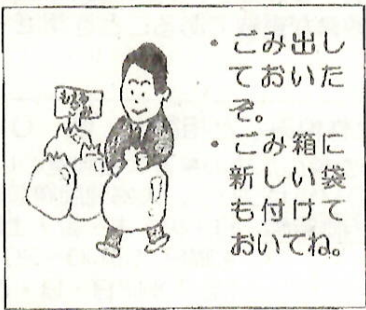 ・ごみ出し
ておいた
ぞ。
・ごみ箱に
新しい袋
も付けて
おいてね。